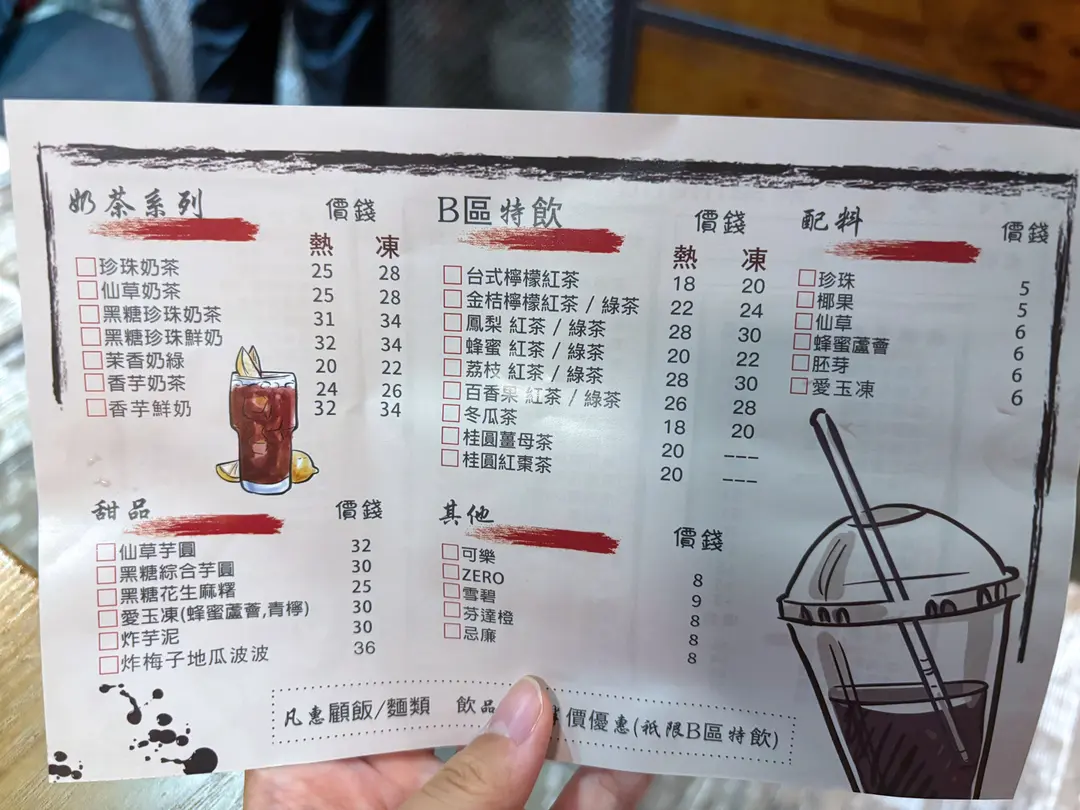 奶茶系列 價錢
熱 凍
珍珠奶茶 25 28
仙草奶茶 25 28
黑糖珍珠奶茶 31 34
黑糖珍珠鮮奶 32 34
茉香奶綠 20 22
香芋奶茶 24 26
香芋鮮奶 32 34
B區特飲 價錢
熱 凍
台式檸檬紅茶 18 20
金桔檸檬紅茶 / 綠茶 22 24
鳳梨 紅茶 / 綠茶 28 30
蜂蜜 紅茶 / 綠茶 20 22
荔枝 紅茶 / 綠茶 28 30
百香果 紅茶 / 綠茶 26 28
冬瓜茶 18 20
桂圓薑母茶 20 ---
桂圓紅棗茶 20 ---
配料 價錢
珍珠 5
椰果 5
仙草 6
蜂蜜蘆薈 6
胚芽 6
愛玉凍 6
甜品 價錢
仙草芋圓 32
黑糖綜合芋圓 30
黑糖花生麻糬 25
愛玉凍(蜂蜜蘆薈,青檸) 30
炸芋泥 30
炸梅子地瓜波波 36
其他 價錢
可樂 8
ZERO 9
雪碧 8
芬達橙 8
忌廉 8
凡惠顧飯/麵類 飲品 價優惠(祗限B區特飲)